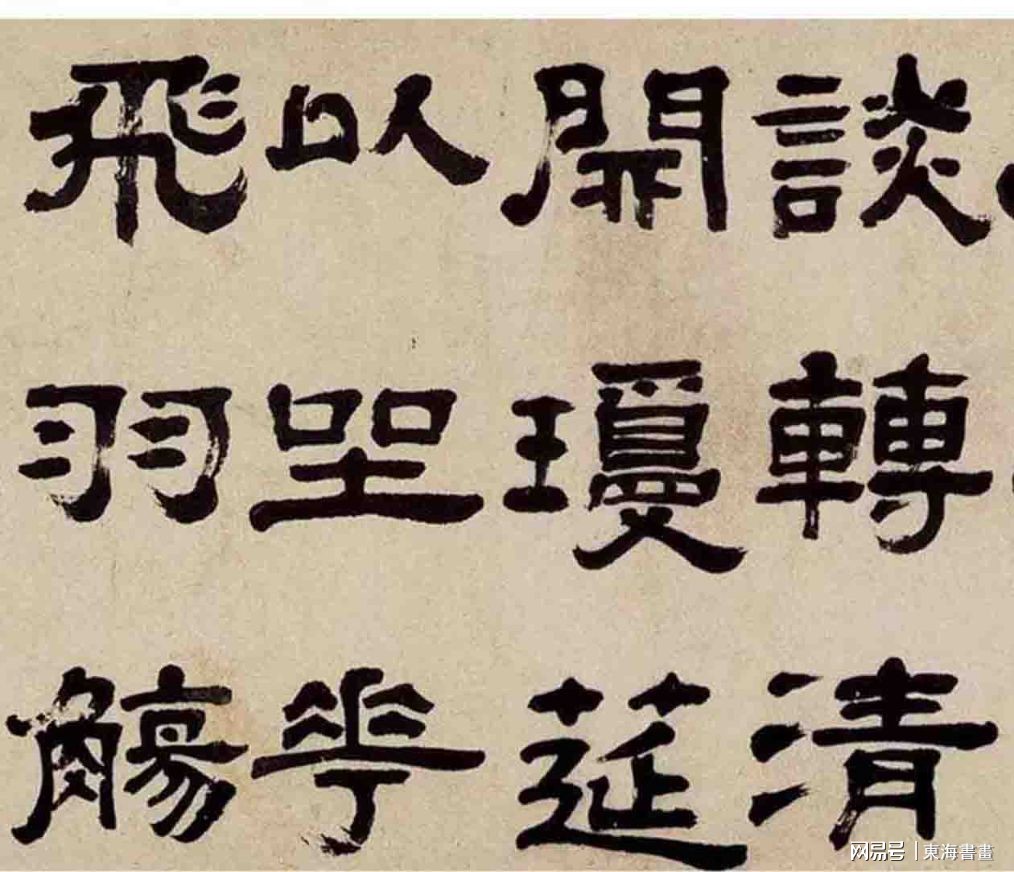 談轉清
開瓊莚
以坐華
飛羽觴
网易号 | 東海書畫